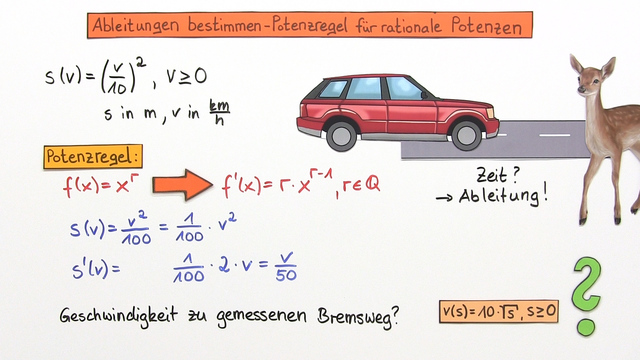 Ableitungen bestimmen-Potenzregel für rationale Potenzen
s(v)=(v/10)², v≥0
s in m, v in km/h
Potenzregel:
f(x)=x^r → f'(x)=r·x^(r-1), r∈ℚ
Zeit?
→ Ableitung!
s(v)=v²/100=1/100·v²
s'(v)= 1/100·2·v=v/50
Geschwindigkeit zu gemessenen Bremsweg?
v(s)=10·√s, s≥0
?